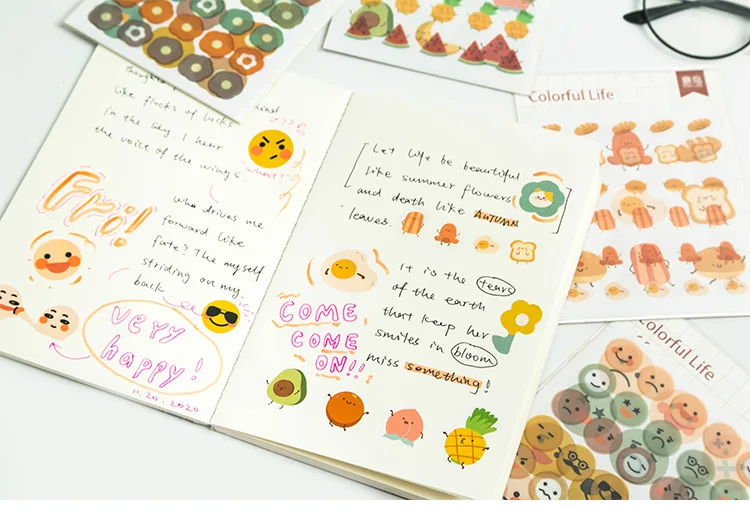 thoughts
like flocks of ducks
in the sky. I hear
the voice of the wings.
"what!!"
Fri!
who drives me
forward like
fate? The myself
striding on my
back
very
happy!
11.20.2020
Let life be beautiful
like summer flowers
and death like AUTUMN
leaves.
It is the tears
of the earth
that keep her
smiles in bloom
miss something!
COME
COME
ON!!!
Colorful Life
Colorful Life